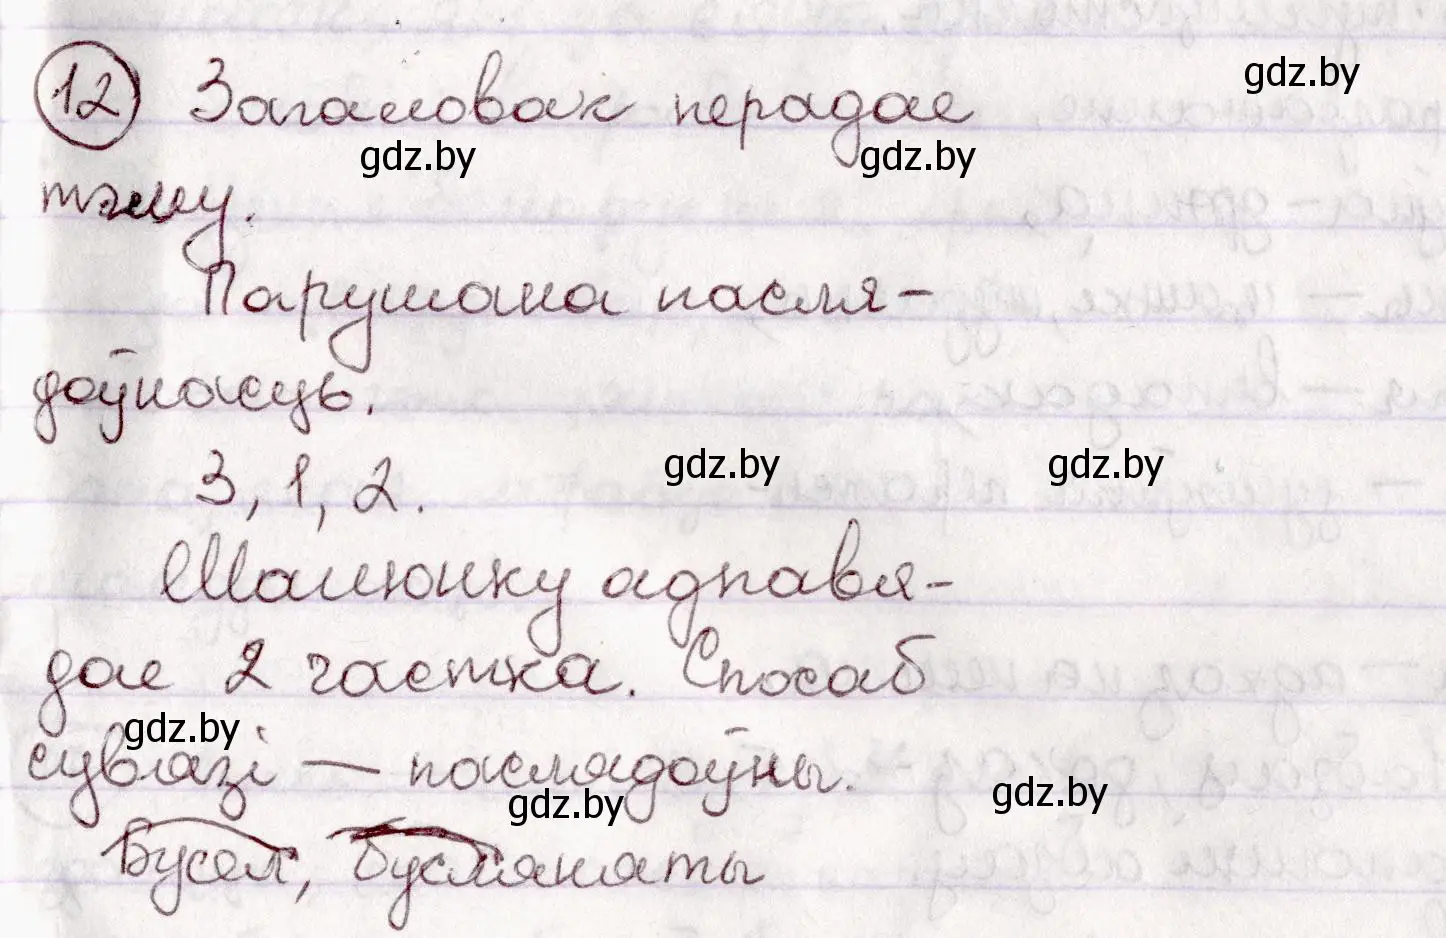 12 Загаловак перадае
gdz.by
gdz.by
gdz.by
тэму.
Парушана пасля-
доўнасць.
3, 1, 2.
gdz.by
gdz.by
Малюнку адпавя-
дае 2 частка. Спосаб
gdz.by
сувязі — паслядоўны.
gdz.by
gdz.by
Бусел, бусляняты